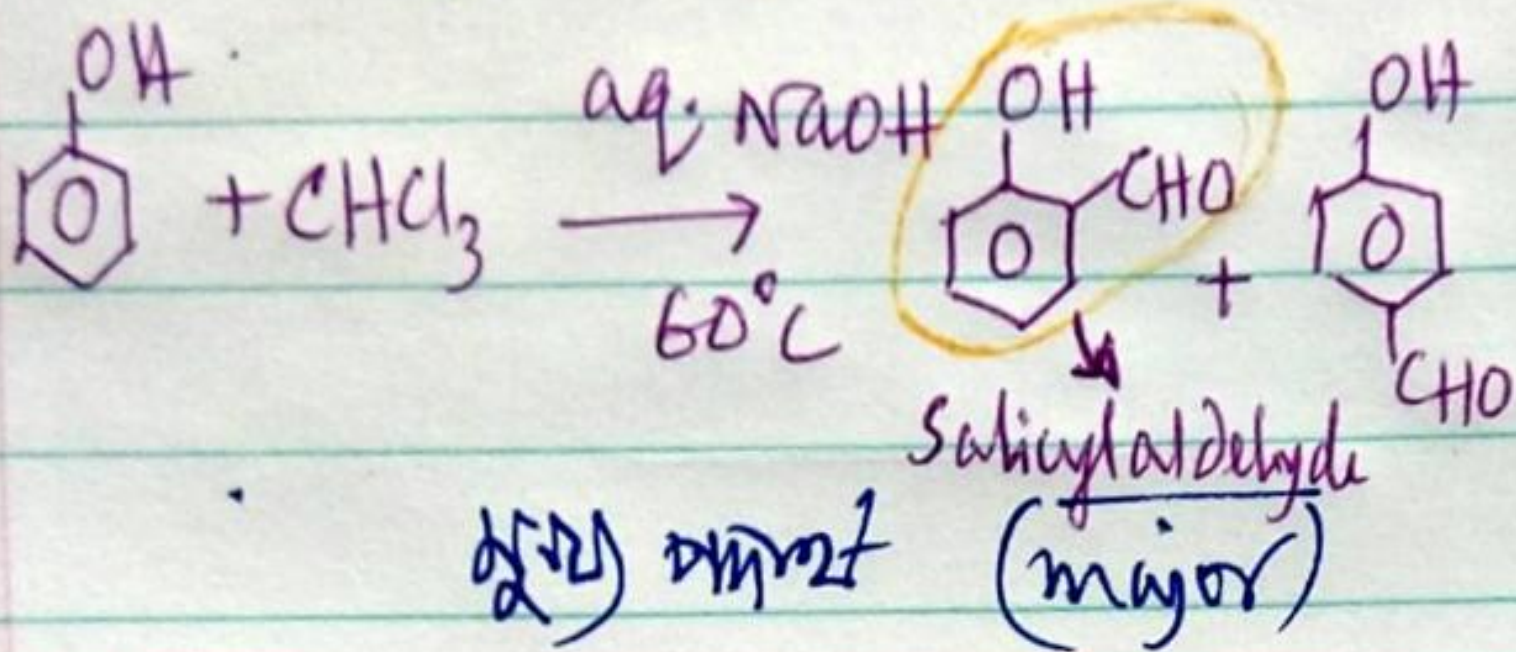 OH + CHCl₃ aq. NaOH → 60°C OH CHO + OH CHO
Salicylaldehyde
মুখ্য (major)